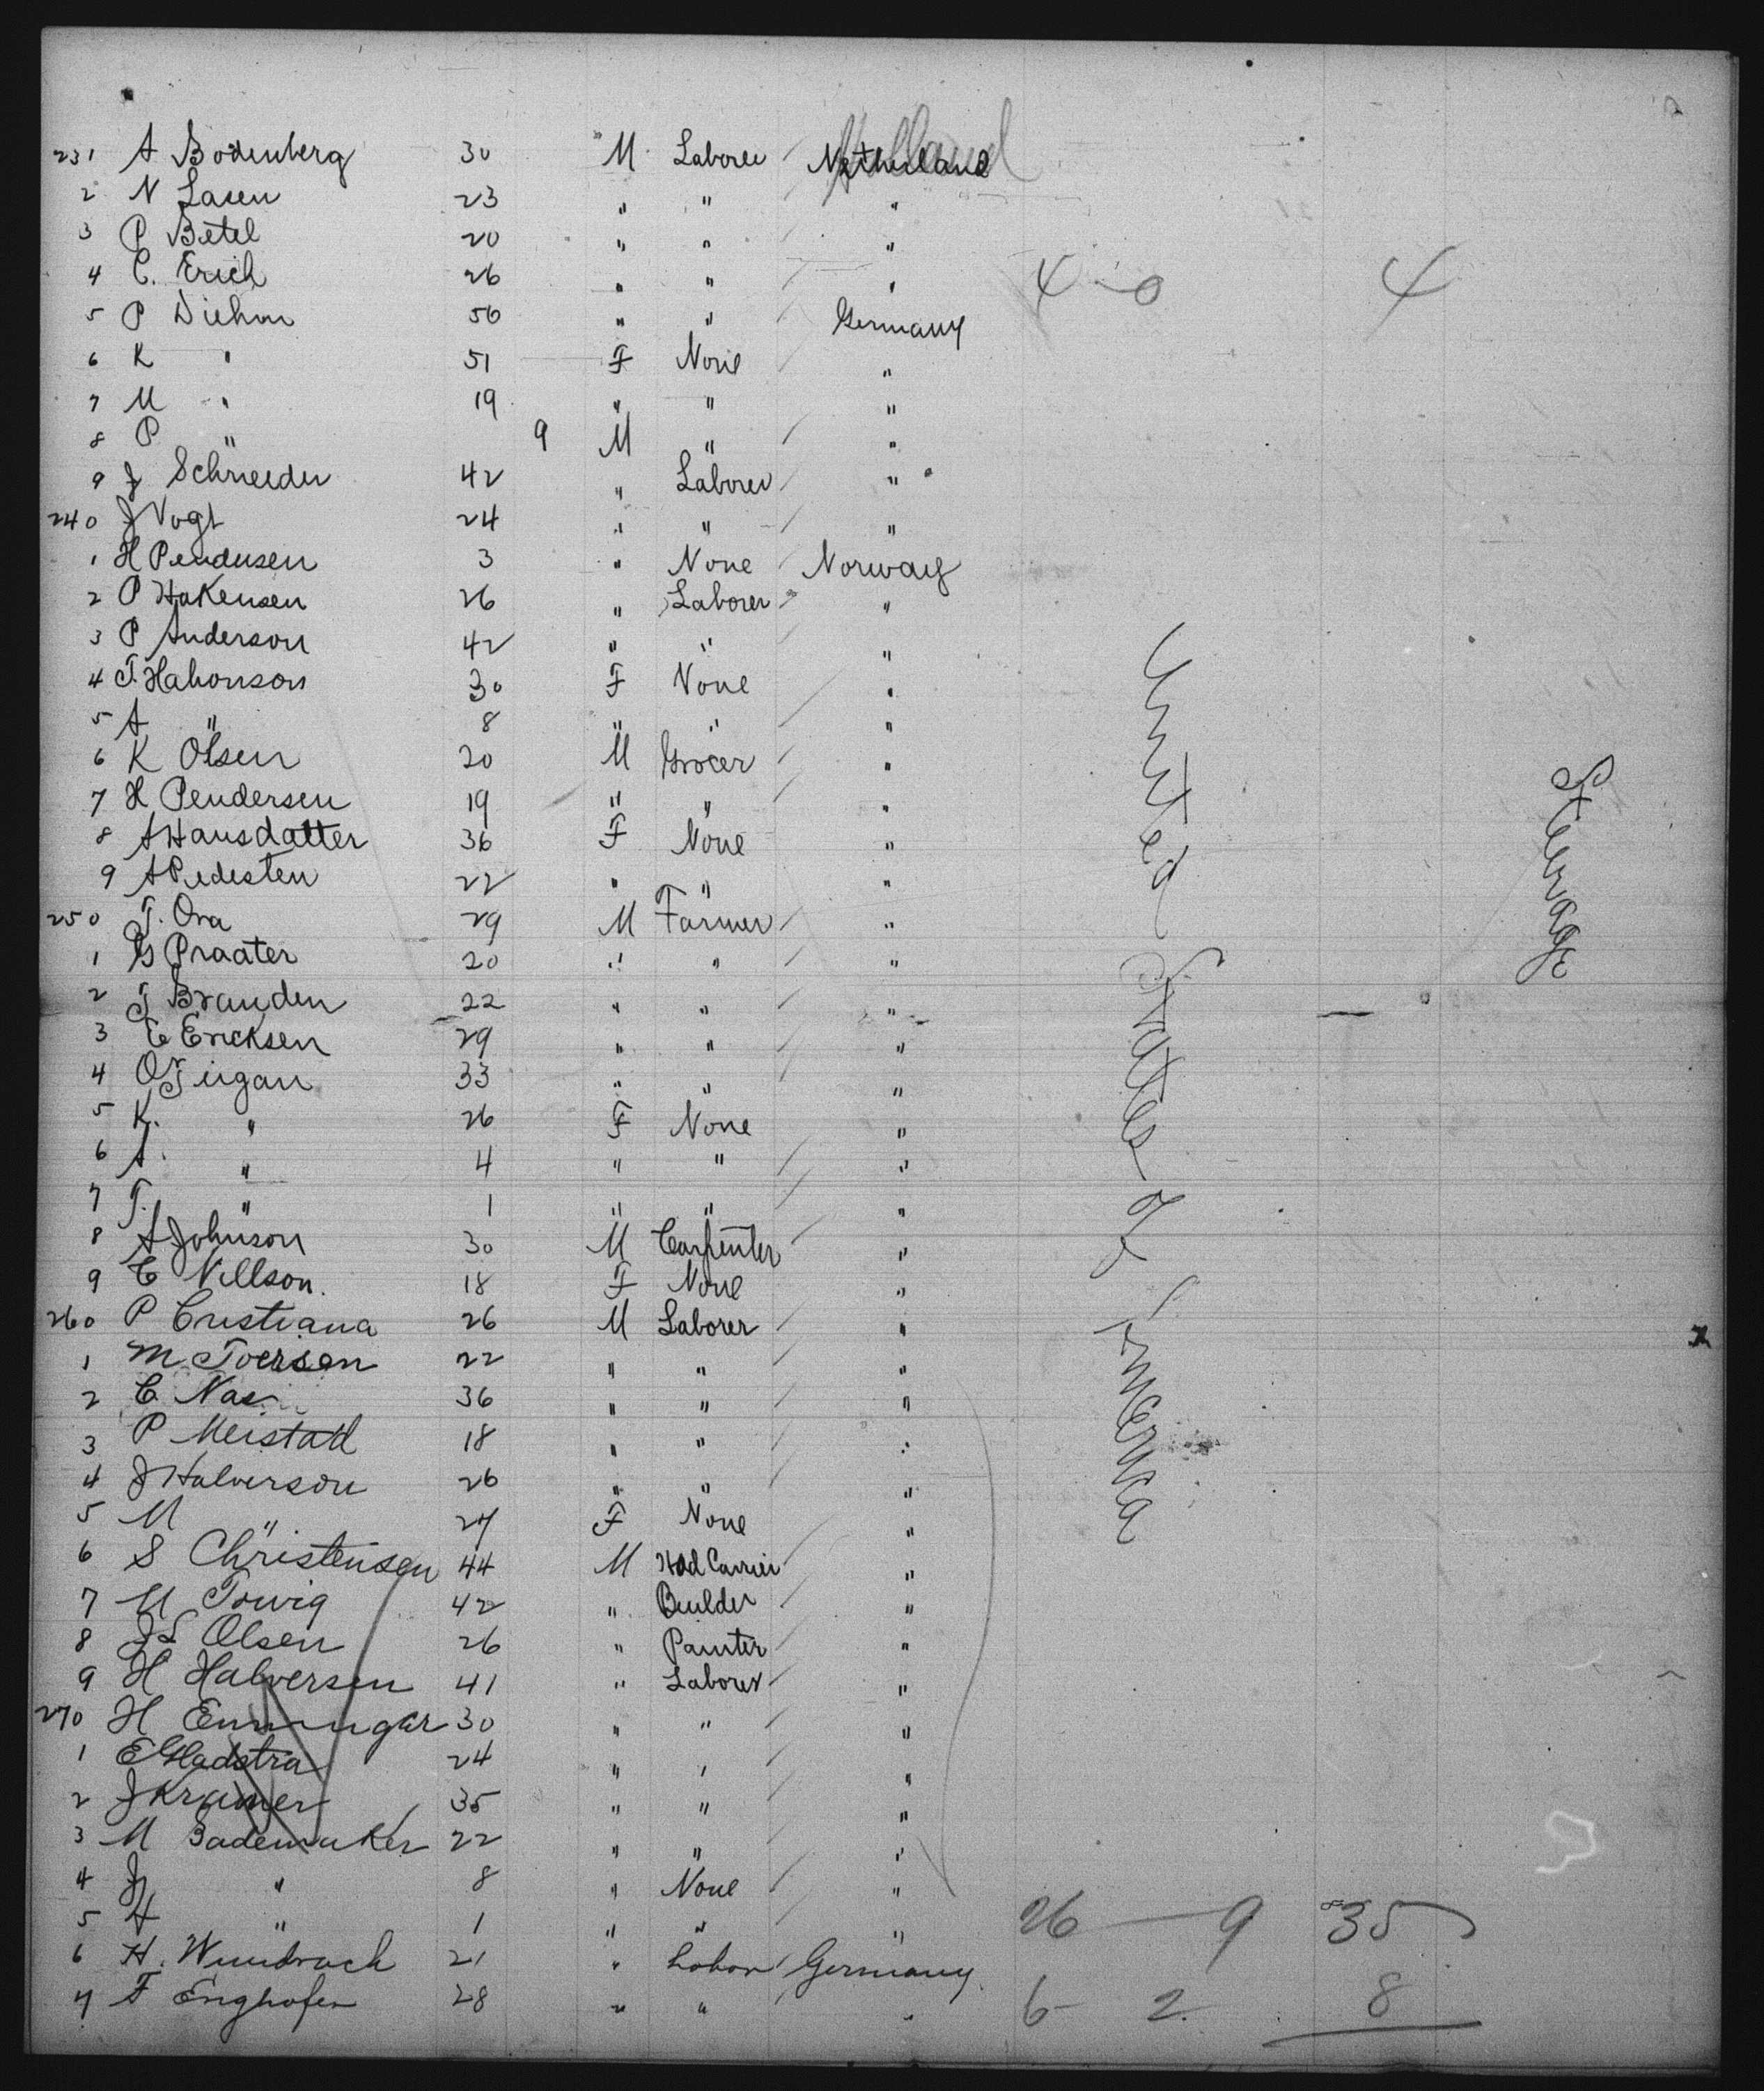 231 A Bodenberg 30 M Laborer Netherland Holland
2 N Lasen 23 " " "
3 P Betel 20 " " "
4 C. Erich 26 " " " 4 - 0 4
5 P Diehm 50 " " Germany
6 K " 51 F None "
7 M " 19 " " "
8 P " 9 M " "
9 J Schneeder 42 " Laborer "
240 J Vogt 24 " " "
1 H Pendersen 3 " None Norway
2 P Hakensen 26 " Laborer "
3 P Anderson 42 " " "
4 T. Hahonson 30 F None "
5 A " 8 " " "
6 K Olsen 20 M Grocer "
7 H Pendersen 19 " " "
8 A Hansdatter 36 F None "
9 A Pedesten 22 " " "
250 T. Ora 29 M Farmer "
1 G Praater 20 " " "
2 J Branden 22 " " "
3 E Ericksen 29 " " "
4 O Tingan 33 " " "
5 K. " 26 F None "
6 A. " 4 " " "
7 T. " 1 " " "
8 A Johnson 30 M Carpenter "
9 C Nillson. 18 F None "
260 P Cristiana 26 M Laborer "
1 M Toersen 22 " " "
2 C Nas 36 " " "
3 P Meistad 18 " " "
4 J Halverson 26 " " "
5 M " 27 F None "
6 S Christensen 44 M Hod Carrier "
7 M Torvig 42 " Builder "
8 J S Olsen 26 " Painter "
9 H Halversen 41 " Laborer "
270 H Enningar 30 " " "
1 E Gladstra 24 " " "
2 J Kramer 35 " " "
3 M Bademaker 22 " " "
4 J " 8 " None "
5 A " 1 " " " 26 - 9 35
6 H. Wundrach 21 " Labor Germany
7 F Enghofer 28 " " " 6 - 2 8
United States of America
Steerage